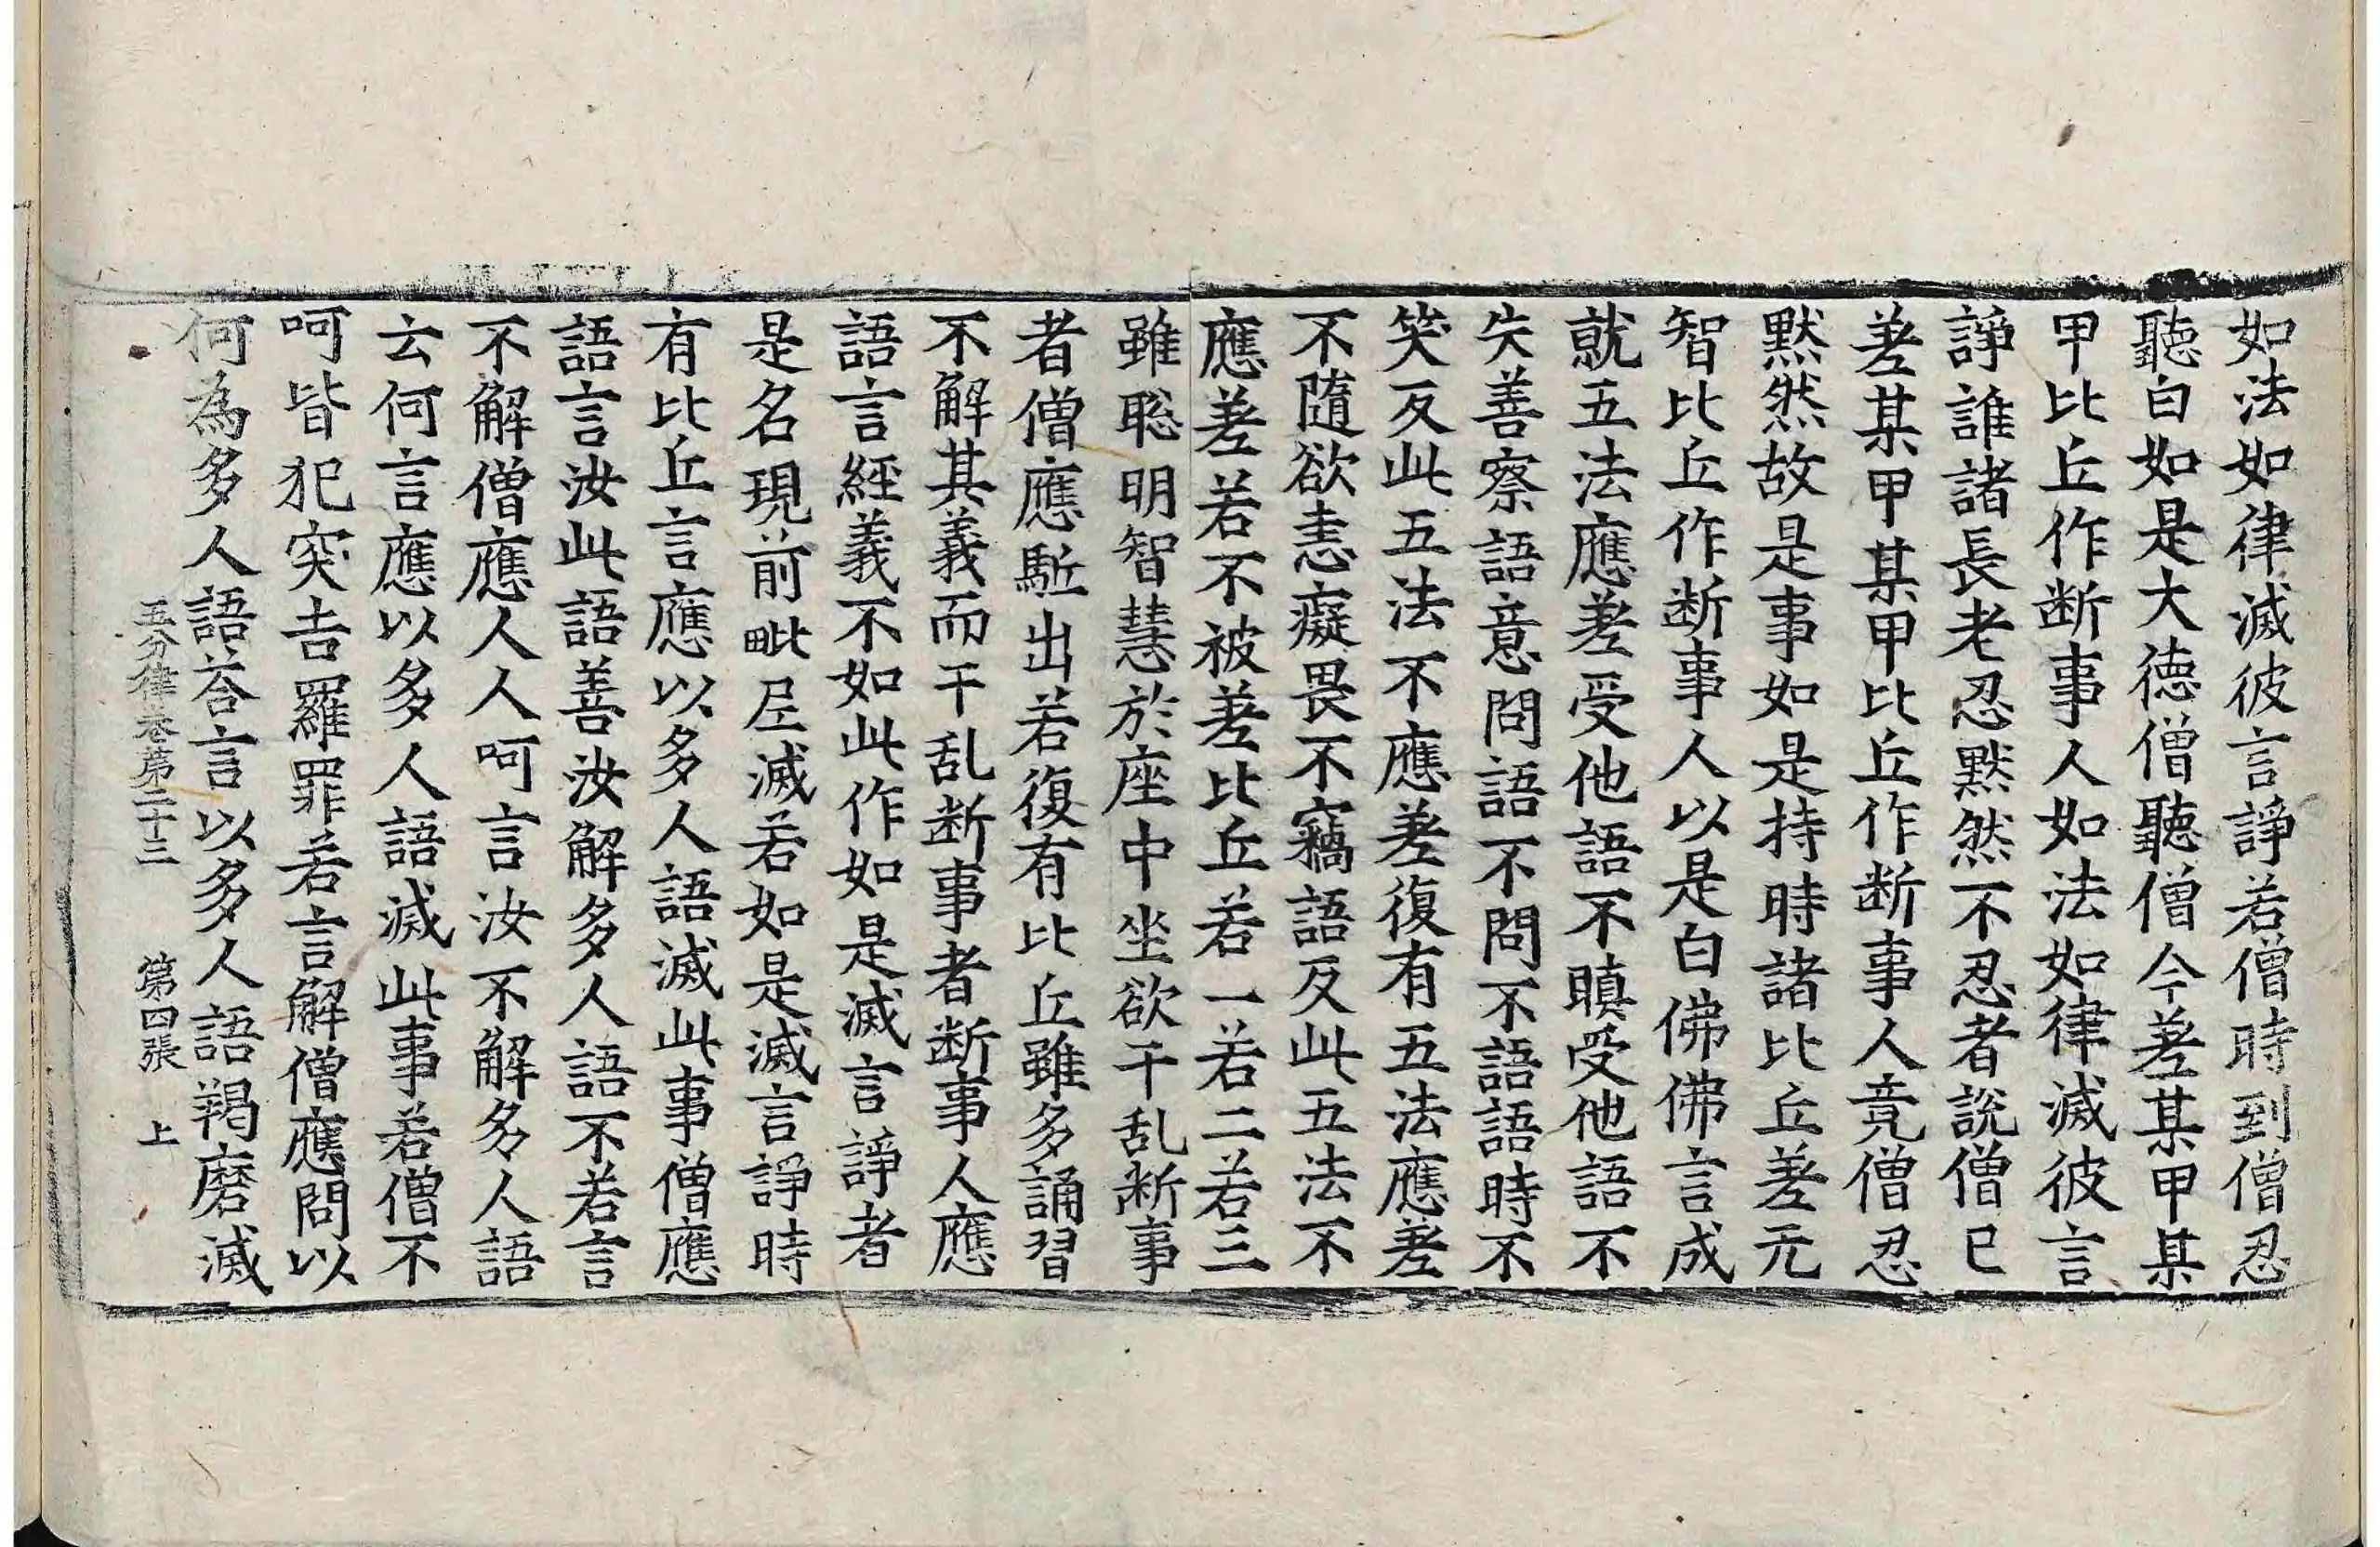 如法如律滅彼言諍若僧時到僧忍
聽白如是大德僧聽僧今差某甲某
甲比丘作断事人如法如律滅彼言
諍誰諸長老忍默然不忍者說僧已
差某甲某甲比丘作断事人竟僧忍
默然故是事如是持時諸比丘差无
智比丘作断事人以是白佛佛言成
就五法應差受他語不瞋受他語不
失善察語意問語不問不語語時不
笑反此五法不應差復有五法應差
不隨欲恚癡畏不竊語反此五法不
應差若不被差比丘若一若二若三
雖聡明智慧於座中坐欲干乱断事
者僧應駈出若復有比丘雖多誦習
不解其義而干乱断事者断事人應
語言經義不如此作如是滅言諍者
是名現前毗尼滅若如是滅言諍時
有比丘言應以多人語滅此事僧應
語言汝此語善汝解多人語不若言
不解僧應人人呵言汝不解多人語
云何言應以多人語滅此事若僧不
呵皆犯突吉羅罪若言解僧應問以
何為多人語荅言以多人語羯磨滅
五分律卷第二十三 第四張 上